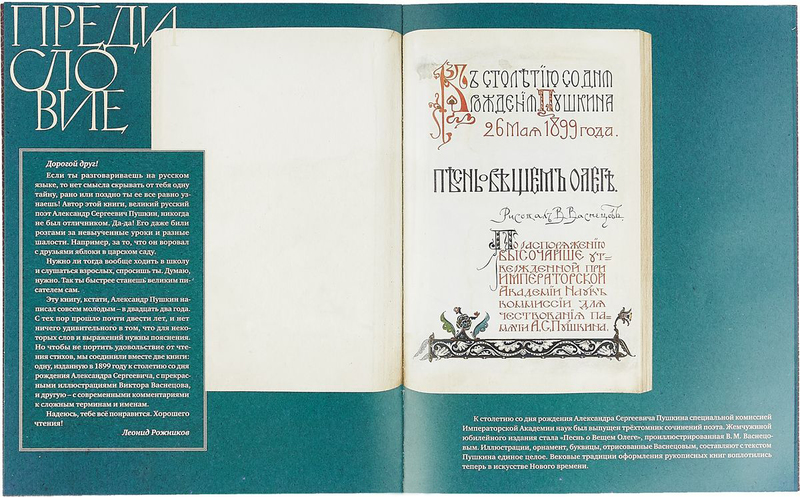 ПРЕДИ
СЛО
ВИЕ
Дорогой друг!
Если ты разговариваешь на русском
языке, то нет смысла скрывать от тебя одну
тайну, рано или поздно ты ее все равно уз-
наешь! Автор этой книги, великий русский
поэт Александр Сергеевич Пушкин, никогда
не был отличником. Да-да! Его даже били
розгами за невыученные уроки и разные
шалости. Например, за то, что он воровал
с друзьями яблоки в царском саду.
Нужно ли тогда вообще ходить в школу
и слушаться взрослых, спросишь ты. Думаю,
нужно. Так ты быстрее станешь великим пи-
сателем сам.
Эту книгу, кстати, Александр Пушкин на-
писал совсем молодым – в двадцать два года.
С тех пор прошло почти двести лет, и нет
ничего удивительного в том, что для неко-
торых слов и выражений нужны пояснения.
Но чтобы не портить удовольствие от чте-
ния стихов, мы соединили вместе две книги:
одну, изданную в 1899 году к столетию со дня
рождения Александра Сергеевича, с прекрас-
ными иллюстрациями Виктора Васнецова,
и другую – с современными комментариями
к сложным терминам и именам.
Надеюсь, тебе всё понравится. Хорошего
чтения!
Леонид Рожников
Въ столѣтію со дня
рожденія Пушкина
26 мая 1899 года.
Пѣснь о вѣщемъ Олегѣ.
Рисовалъ В. Васнецовъ
По распоряженію
высочайше ут-
вержденной при
Императорской
Академіи Наукъ
коммиссіи для
чествованія па-
мяти А.С. Пушкина.
К столетию со дня рождения Александра Сергеевича Пушкина специальной комиссией
Императорской Академии наук был выпущен трёхтомник сочинений поэта. Жемчужиной
юбилейного издания стала «Песнь о Вещем Олеге», проиллюстрированная В. М. Васнецо-
вым. Иллюстрации, орнамент, буквицы, отрисованные Васнецовым, составляют с текстом
Пушкина единое целое. Вековые традиции оформления рукописных книг воплотились
теперь в искусстве Нового времени.